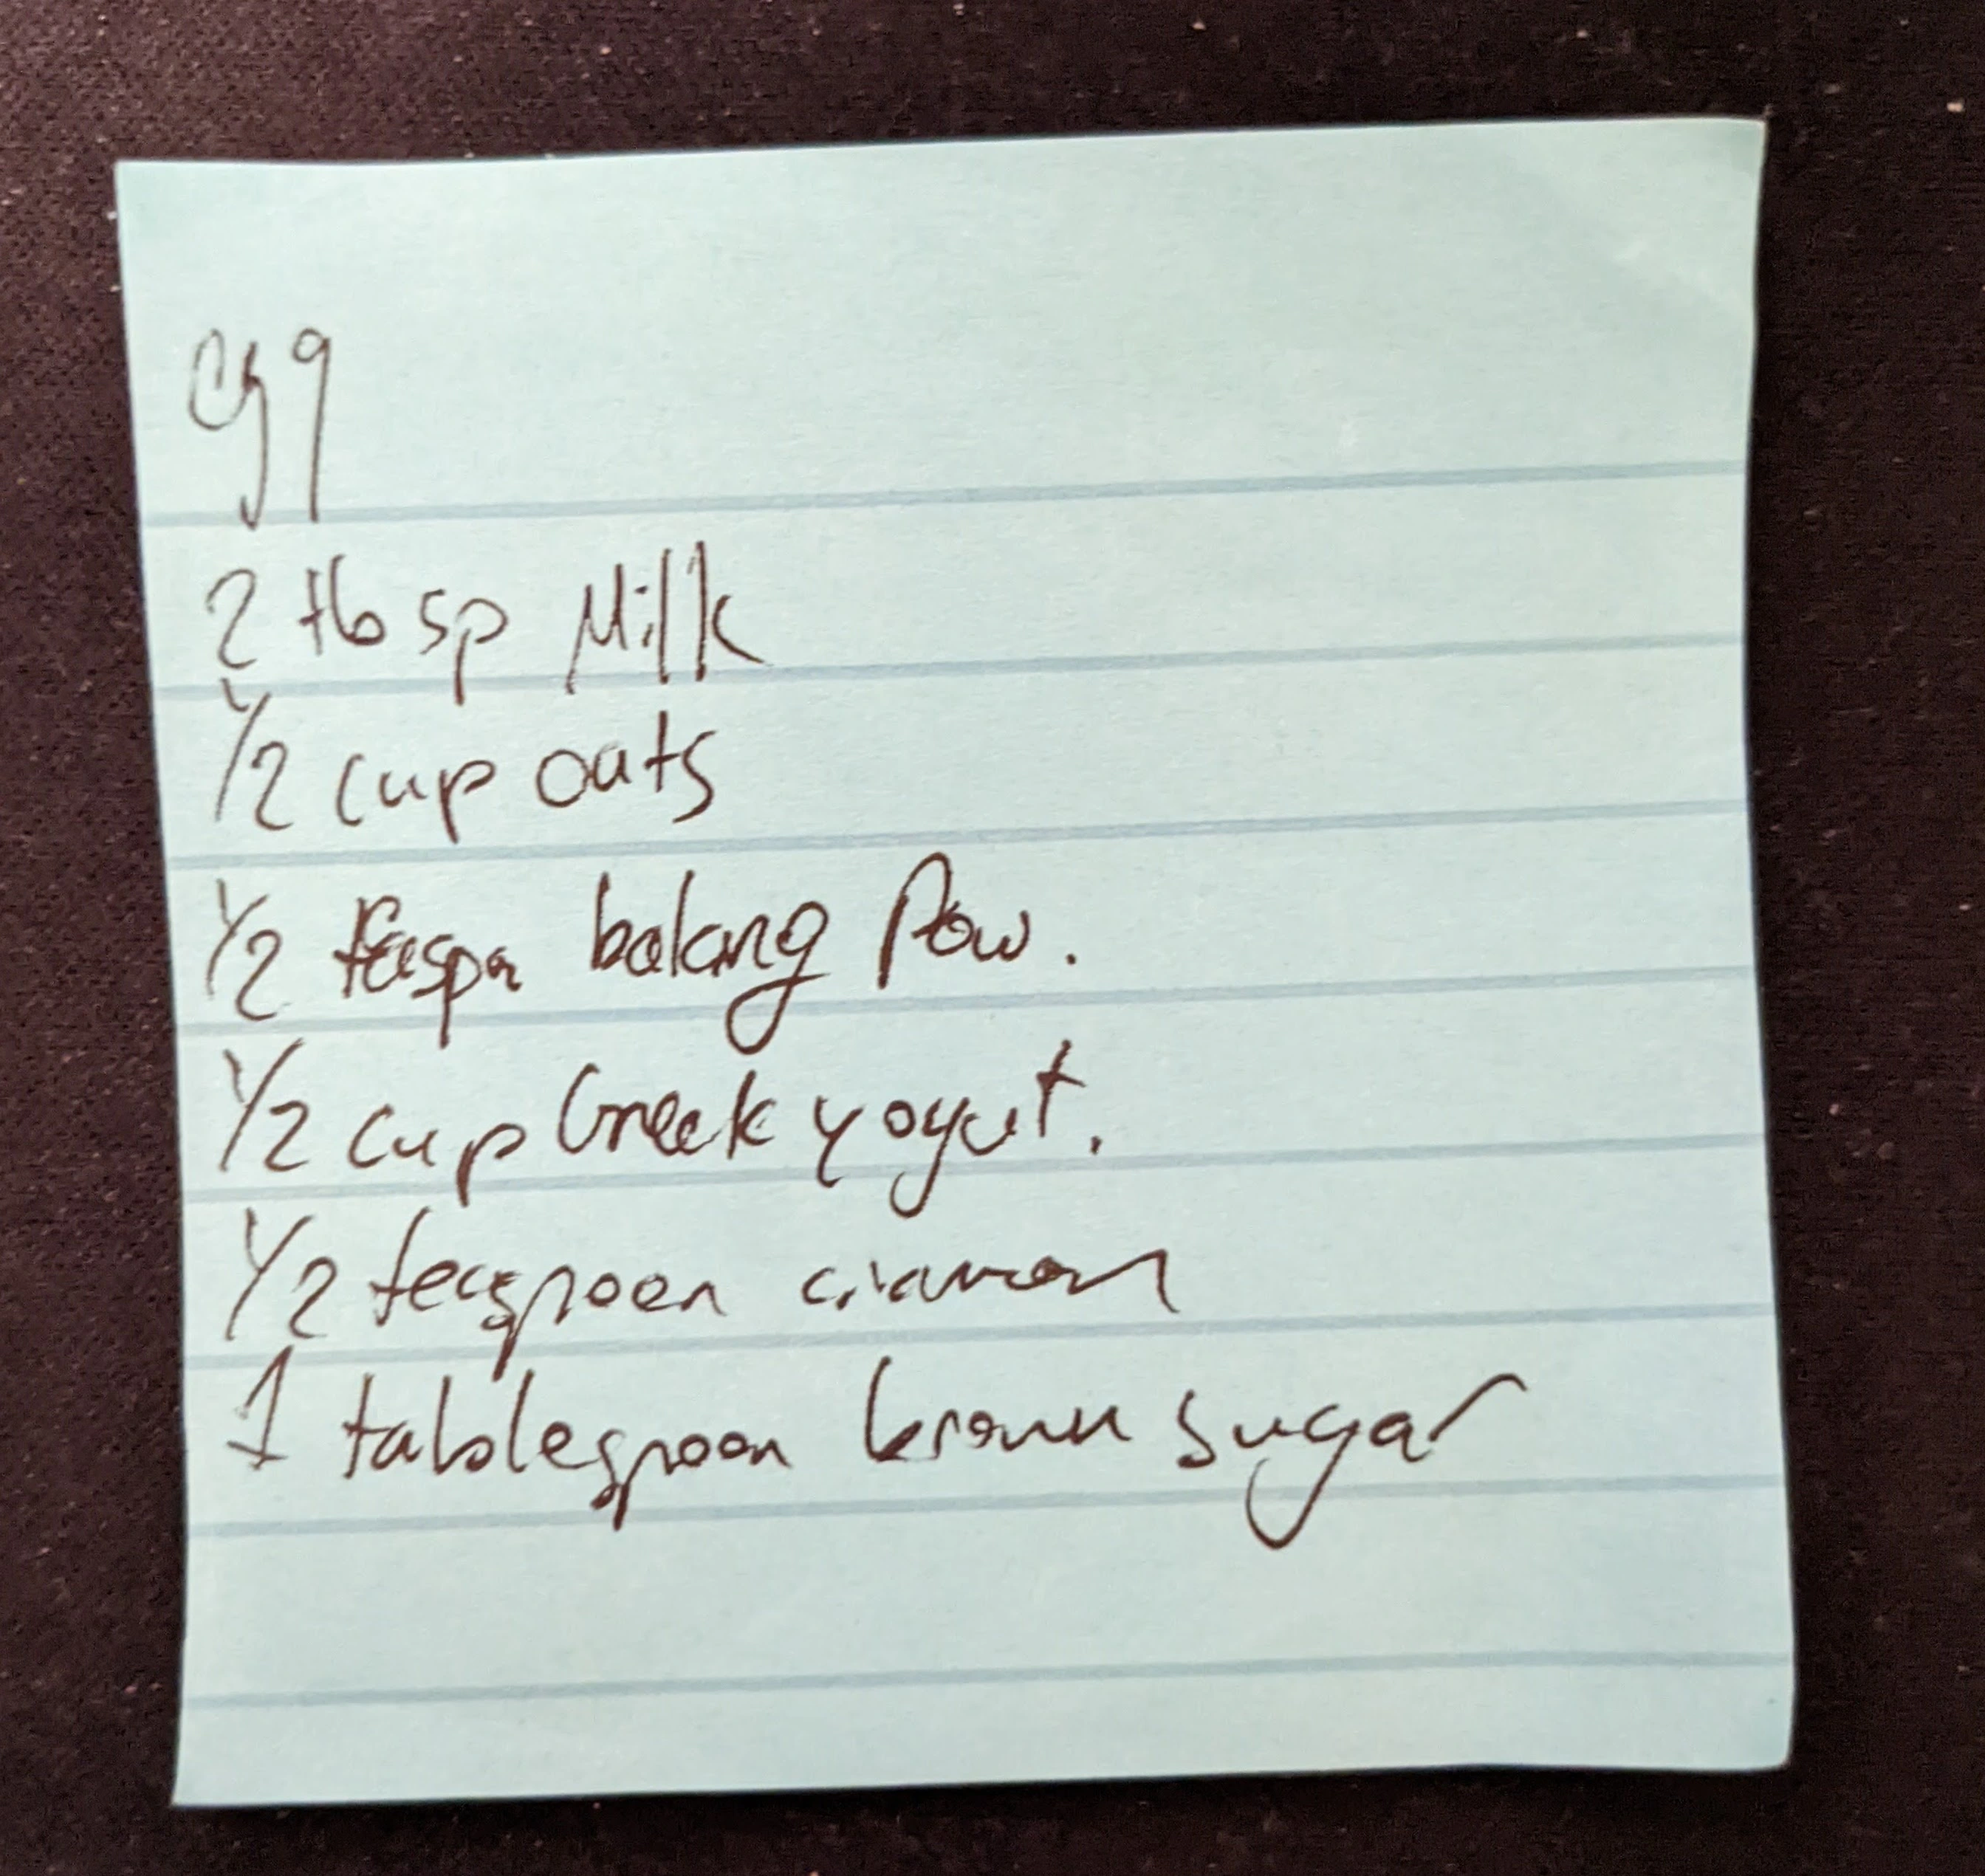 egg
2 tbsp Milk
1/2 cup oats
1/2 teaspn baking Pow.
1/2 cup Greek yogut.
1/2 teaspoon cinamon
1 tablespoon brown sugar